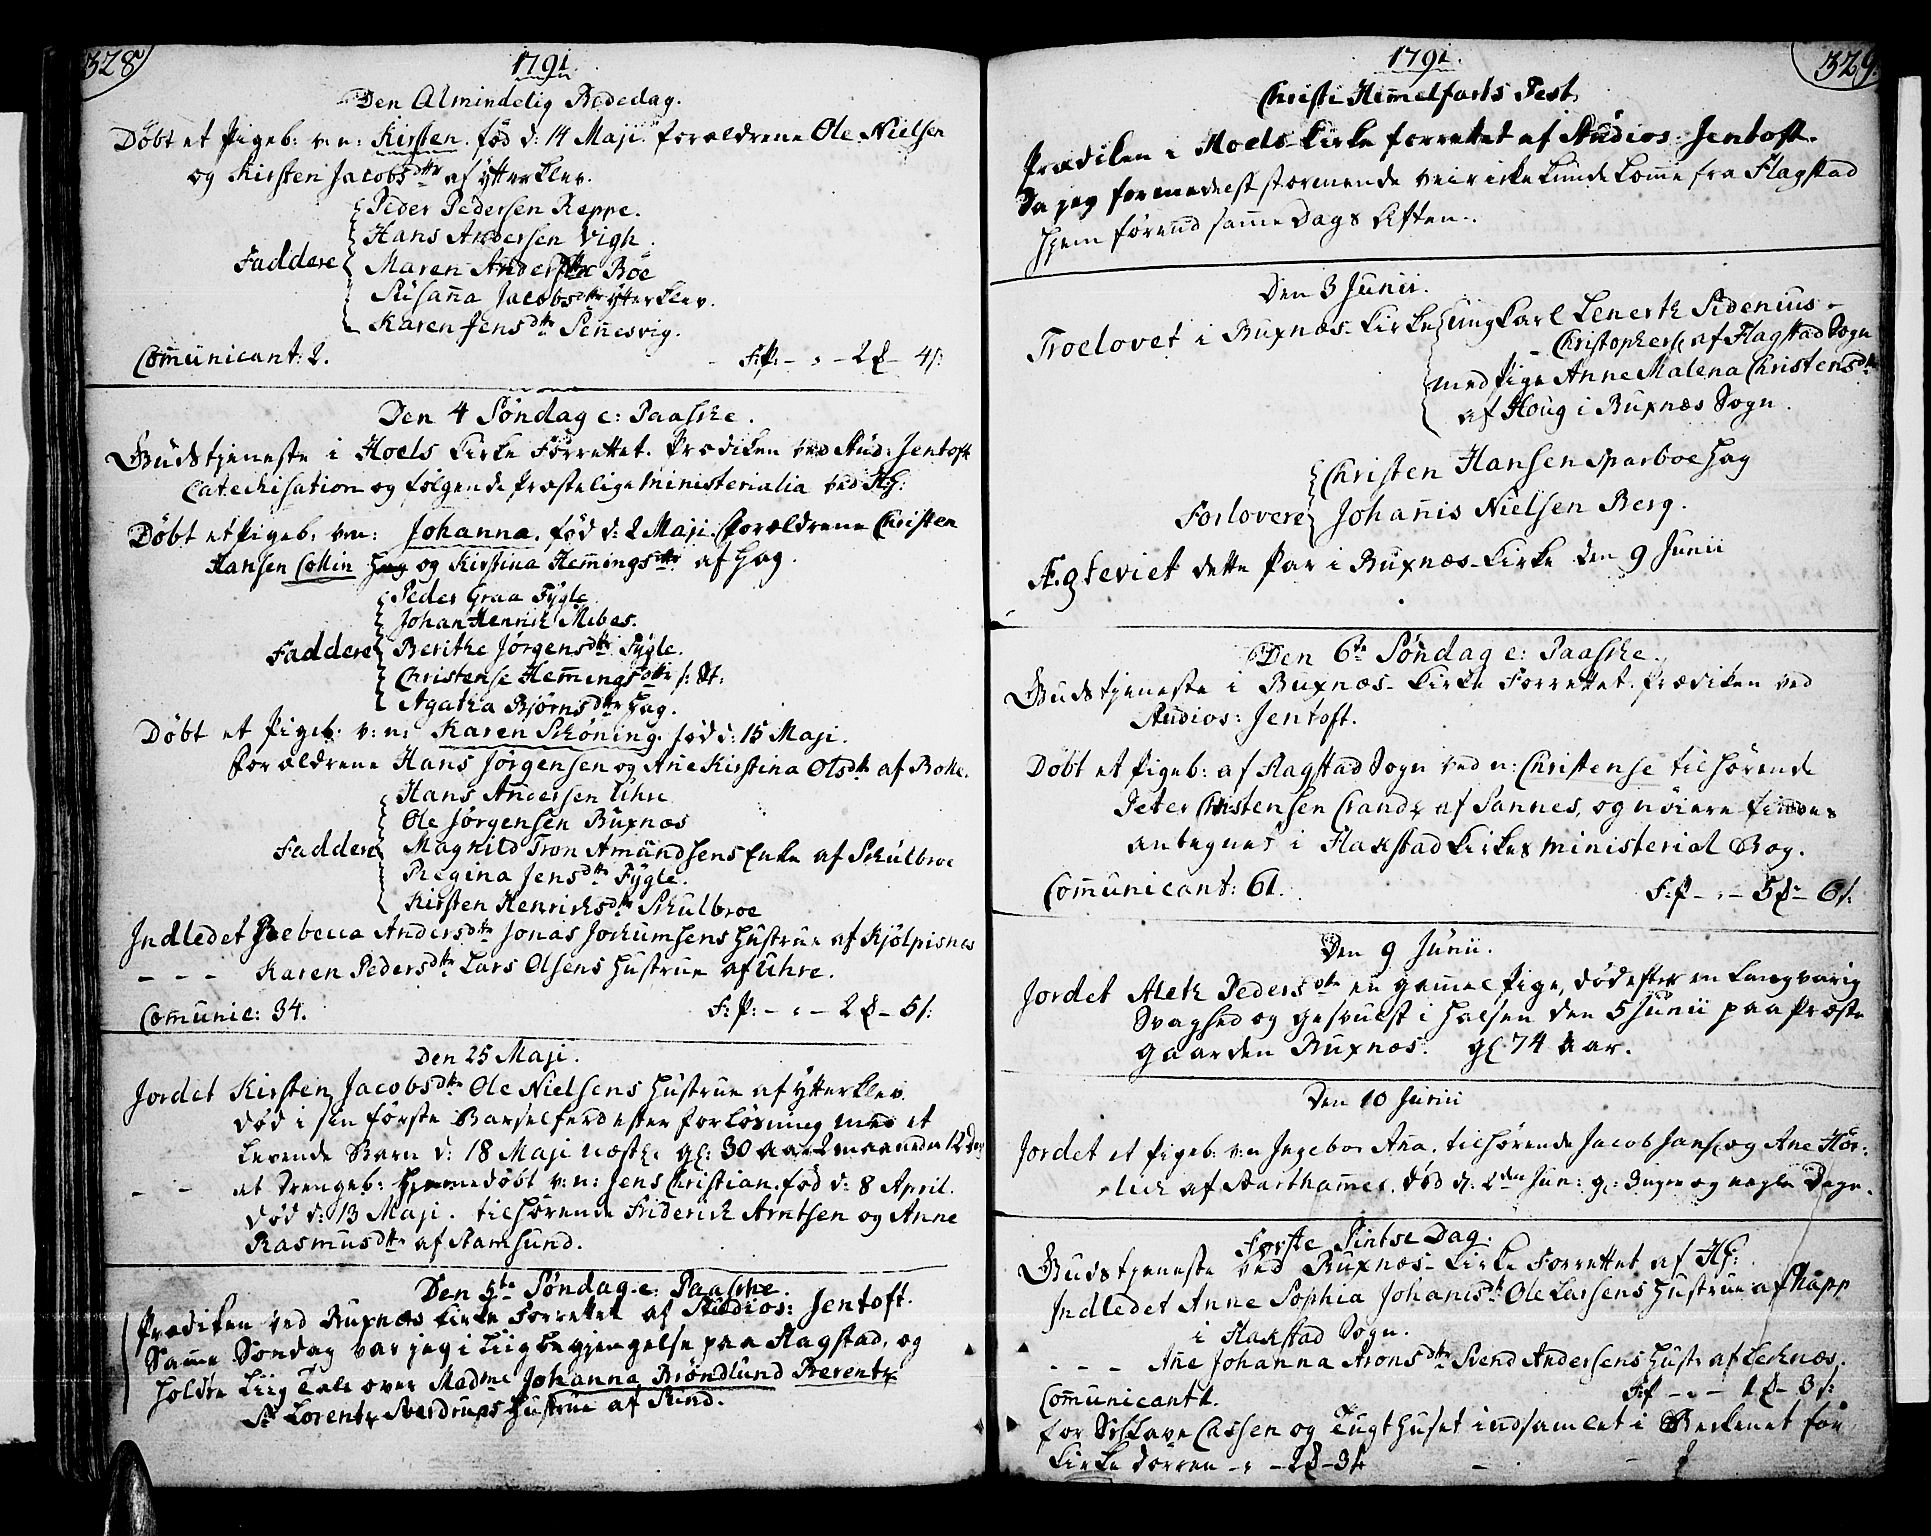 328
1791
Den Almindelig Bededag.
Döbt et Pigeb: v: n: Kirsten. föd d: 14 Maji. forældrene Ole Nielsen
og Kirsten Jacobsdttr af Ytterklev.
Peder Pedersen Reppe.
Hans Andersen Vigh.
Faddere Maren Andersdttr Böe
Susanna Jacobsdttr Ytterklev.
Karen Jensdttr Sennesvig.
Communicant: 2. F:P: - : - 2 - 4 s:
Den 4 Söndag e: Paaske.
Gudstjeneste i Hoels Kirke Forrettet. Prædiken ved Stud: Jentoft
Catechisation og fölgende Præstelige ministerialia ved
Döbt et Pigeb: v: n: Johanna. föd d: 2 Maji. Forældrene Christen
Hansen Collin Hag og Kirstina Hemmingsdttr af Hag.
Peder Graa Fygle
Johan Henrich Mebes.
Faddere Berithe Jörgensdttr Fygle.
Christense Hemmingsdttr s: St:
Agatha Björnsdttr Hag.
Döbt et Pigeb: v: n: Karen Schöning. föd d: 15 Maji.
forældrene Hans Jörgensen og Ane Kirstina Olsdtr af Bolle.
Hans Andersen Uhre
Ole Jörgensen Buxnæs
Faddere Magnild Tron Amundsens Enke af Skulbroe
Regina Jensdtr Fygle.
Kirsten Henrichsdtr Skulbroe
Indledet Rebecca Andersdttr Jonas Jochumsens Hustrue af Kjölpisnes
- - - Karen Pedersdttr Lars Olsens Hustrue af Uhre.
Communic: 34. F:P: - : - 2 - 5 s:
Den 25 Maji.
Jordet Kirsten Jacobsdttr Ole Nielsens Hustrue af Ytterklev.
död i sin förste Barselferd efter forlösning med et
levende Barn d: 18 Maji næstl. gl: 30 Aar 2 maaneder 12 Dag
- - et Drengeb: Hjemmedöbt v: n: Jens Christian. föd d: 8 April.
död d: 13 Maji. tilhörende Friderich Arntsen og Anne
Rasmusdttr af Stamsund.
Den 5te Söndag e: Paaske.
Prædiken ved Buxnæs Kirke Forrettet af Studios: Jentoft.
Samme Söndag var jeg i Liigbegjengelse paa Flagstad, og
holdte Liig Tale over Madme Johanna Bröndlund Berentz
Sr Lorentz Sverdrups Hustrue af Sund.
1791.
329.
Christi Himmelfarts Fest.
Prædiken i Hoels Kirke forrettet af Studios: Jentoft.
Da jeg formedelst stormende veir ikke kunde komme fra Flagstad
hjem förend samme Dags Aften.
Den 3 Junii.
Troelovet i Buxnæs Kirke ungkarl Lenerth Sidenius
Christophers: af Flagstad Sogn
med Pige Anne Malena Christensdtr
af Houg i Buxnæs Sogn.
Christen Hansen Sparboe Hag
Forlovere Johannis Nielsen Berg.
Ægteviet dette Par i Buxnæs Kirke den 9 Junii
Den 6te Söndag e: Paaske.
Gudstjeneste i Buxnæs Kirke Forrettet. Prædiken ved
Studios: Jentoft.
Döbt et Pigeb: af Flagstad Sogn ved n: Christense tilhörende
Peter Christensen Crantz af Sannes, og nöiere findes
antegnet i Flakstad Kirkes ministerial Bog.
Communicant: 61. F:P - : - 5 - 6 s:
Den 9 Junii.
Jordet Aleth Pedersdtr en gammel Pige, död efter en langvarig
Svaghed og gesvulst i Halsen den 5 Junii paa Præste
gaarden Buxnæs. gl 74 Aar.
Den 10 Junii
Jordet et Pigeb: v: n: Ingebor Ana. tilhörende Jacob Jans: og Ane Hör-
af Aarthammer. död d: 2den Jun: g: 3 uger og nogle Dage.
Förste Pintse Dag.
Gudstjeneste ved Buxnæs Kirke Forrettet af
Indledet Anne Sophia Johanisdtr Ole Larsens Hustrue af Napp
i Flakstad Sogn.
- - - Ane Johanna Aronsdtr Svend Andersens Hustr: af Leknæs.
Communicant 1. F:P - : - 1 - 3 s:
for Slave Cassen og Tugthuset indsamlet i Bekkenet for
Kirke dörren - : - 2 - 3 s